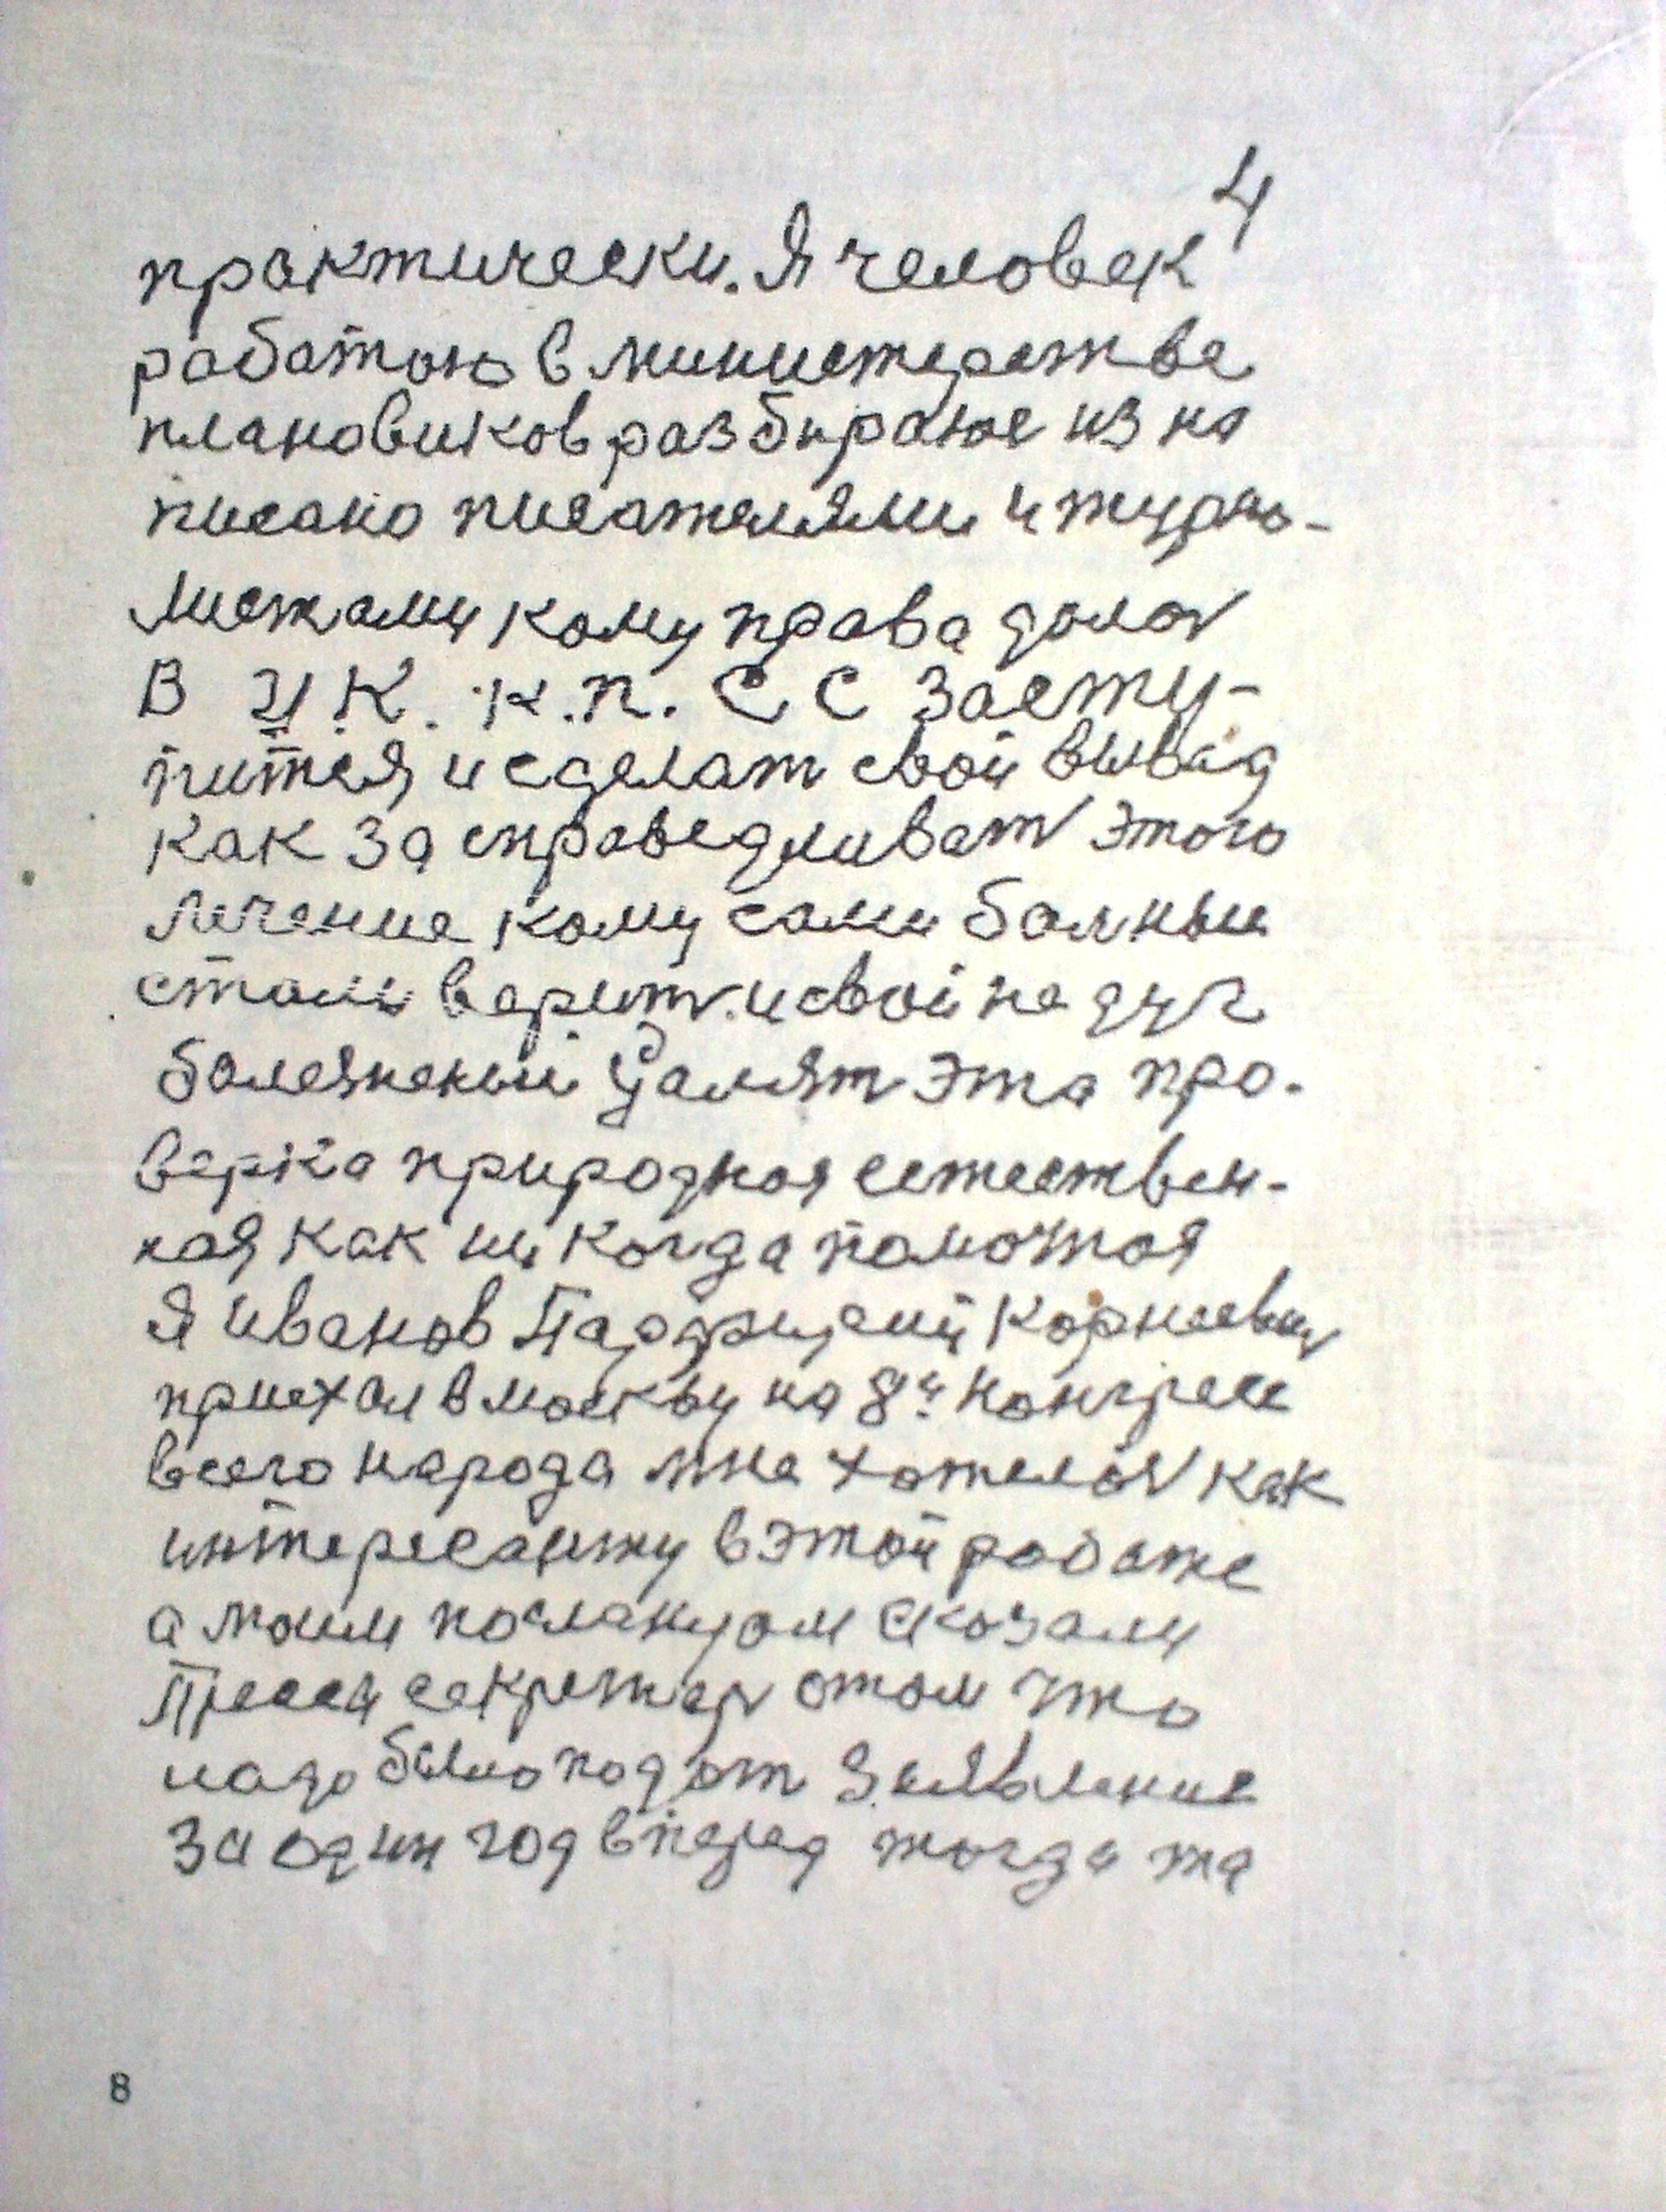 4
практически. Я человек
работою в министерстве
плановиков разбираюс из на
писано писателями и журно-
листами кому права далос
В ЦК. К.П. СС засту-
питься и сделат свой вывад
как за справедливаст этого
лечение кому сами болныи
стали верит. и свой недуг
болезненый удалят эта про-
верка природная естествен-
ная как ни когда памочная
Я Иванов Парфирий Корнеевич
приехал в москву на 8й конгресс
всего народа мне хотелос как
интересанту в этой работе
а моим посланцам сказали
Пресса секретар отом что
надо было подат заявление
за один год вперед тогда та
8